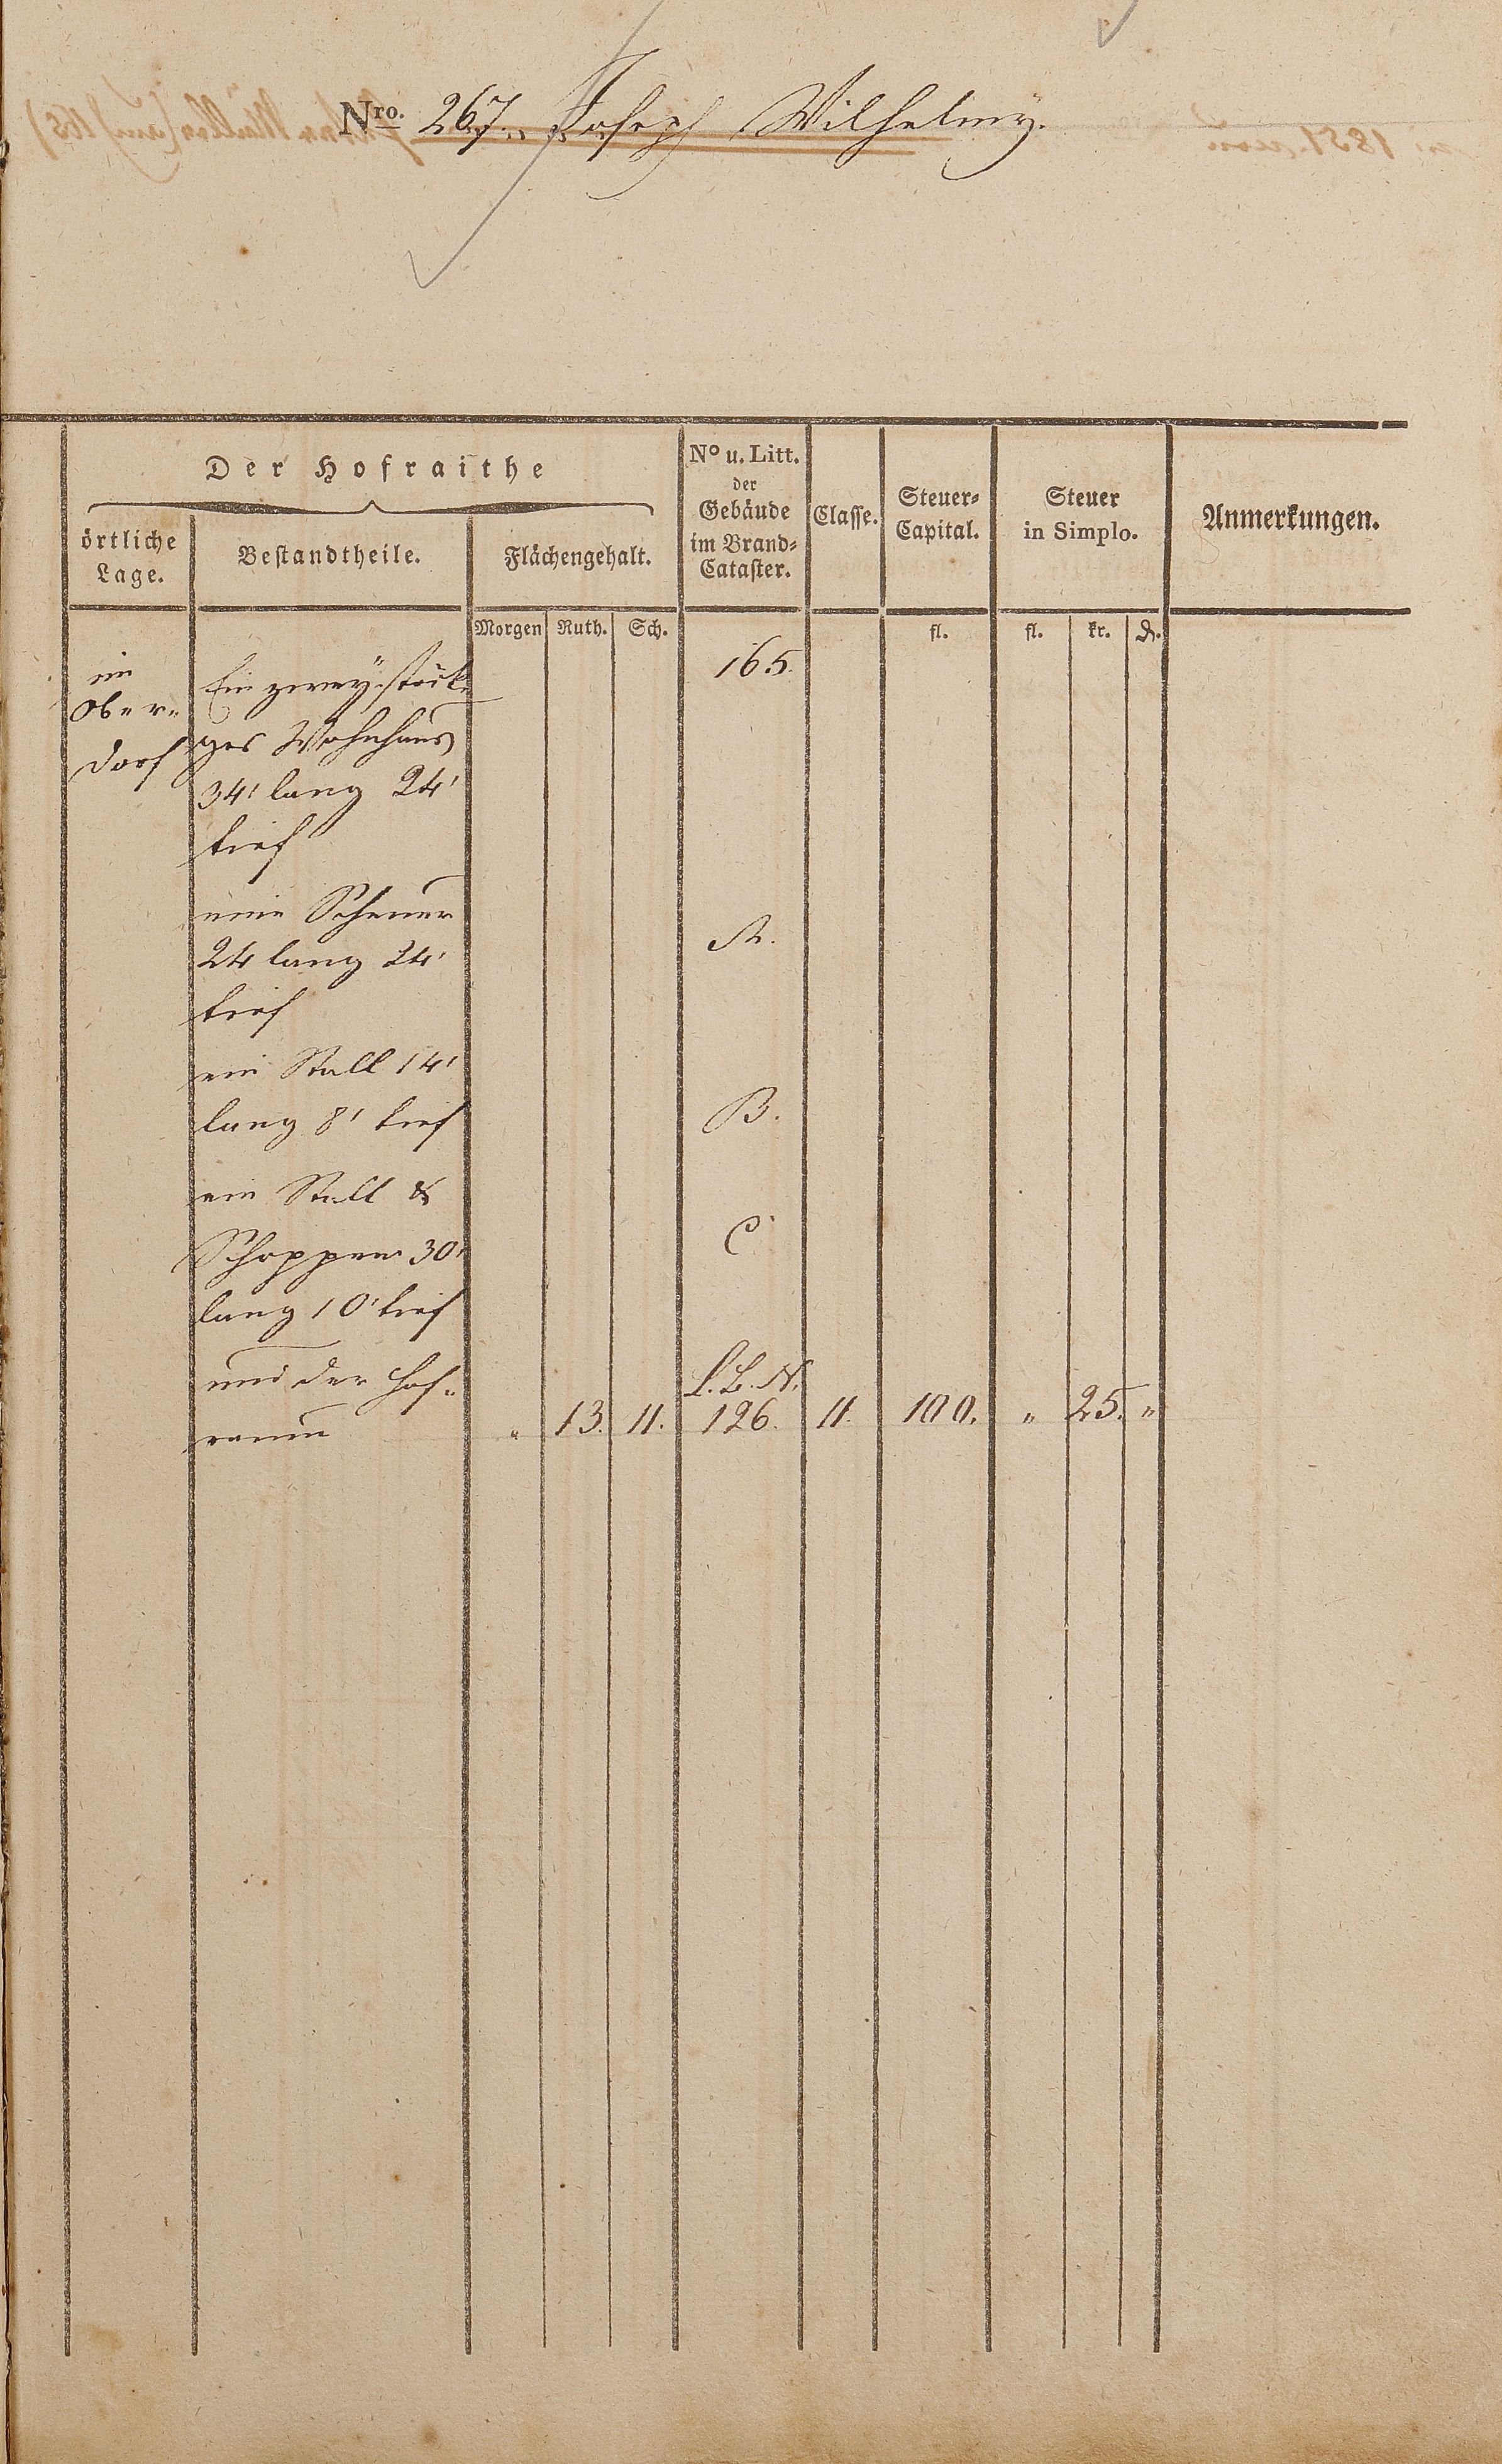 Nro. 267. Joseph Wilhelmy.
Der Hofraithe
örtliche Lage.
Bestandtheile.
Flächengehalt.
No u. Litt. der Gebäude im Brand-Cataster.
Classe.
Steuer-Capital.
Steuer in Simplo.
Anmerkungen.
Morgen Ruth. Sch. fl. fl. kr. d.
im
Ober-
dorf
Ein zweystöcki- 165.
ges Wohnhaus
34' lang 24'
tief
eine Scheuer
24 lang 24' A.
tief
ein Stall 14'
lang 8' tief B.
ein Stall &
Schoppen 30' C
lang 10' tief
und der Hof- L. B. N.
raum " 13. 11. 126. 11. 100. " 25. "